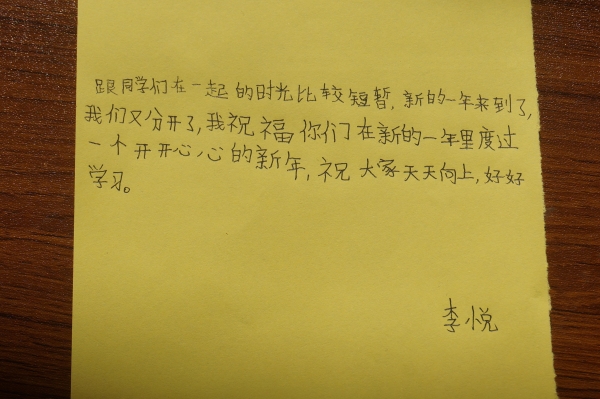 跟同学们在一起的时光比较短暂,新的一年来到了,
我们又分开了,我祝福你们在新的一年里度过
一个开开心心的新年,祝大家天天向上,好好
学习。
李悦